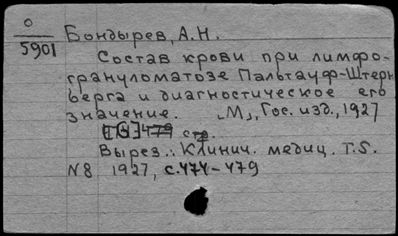 О
5901
Бондырев, А.Н.
Состав крови при лимфо-
грануломатозе Пальтауф-Штерн
берга и диагностическое его
значение. [М], Гос. изд., 1927
стр.
Вырез.: Клинич. медиц. T.5.
N8 1927, с.474-479